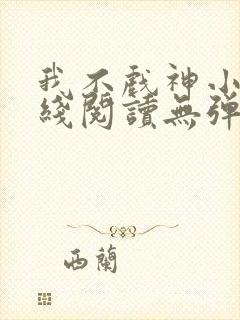 我不戲神小
綫閱讀無彈
西蘭